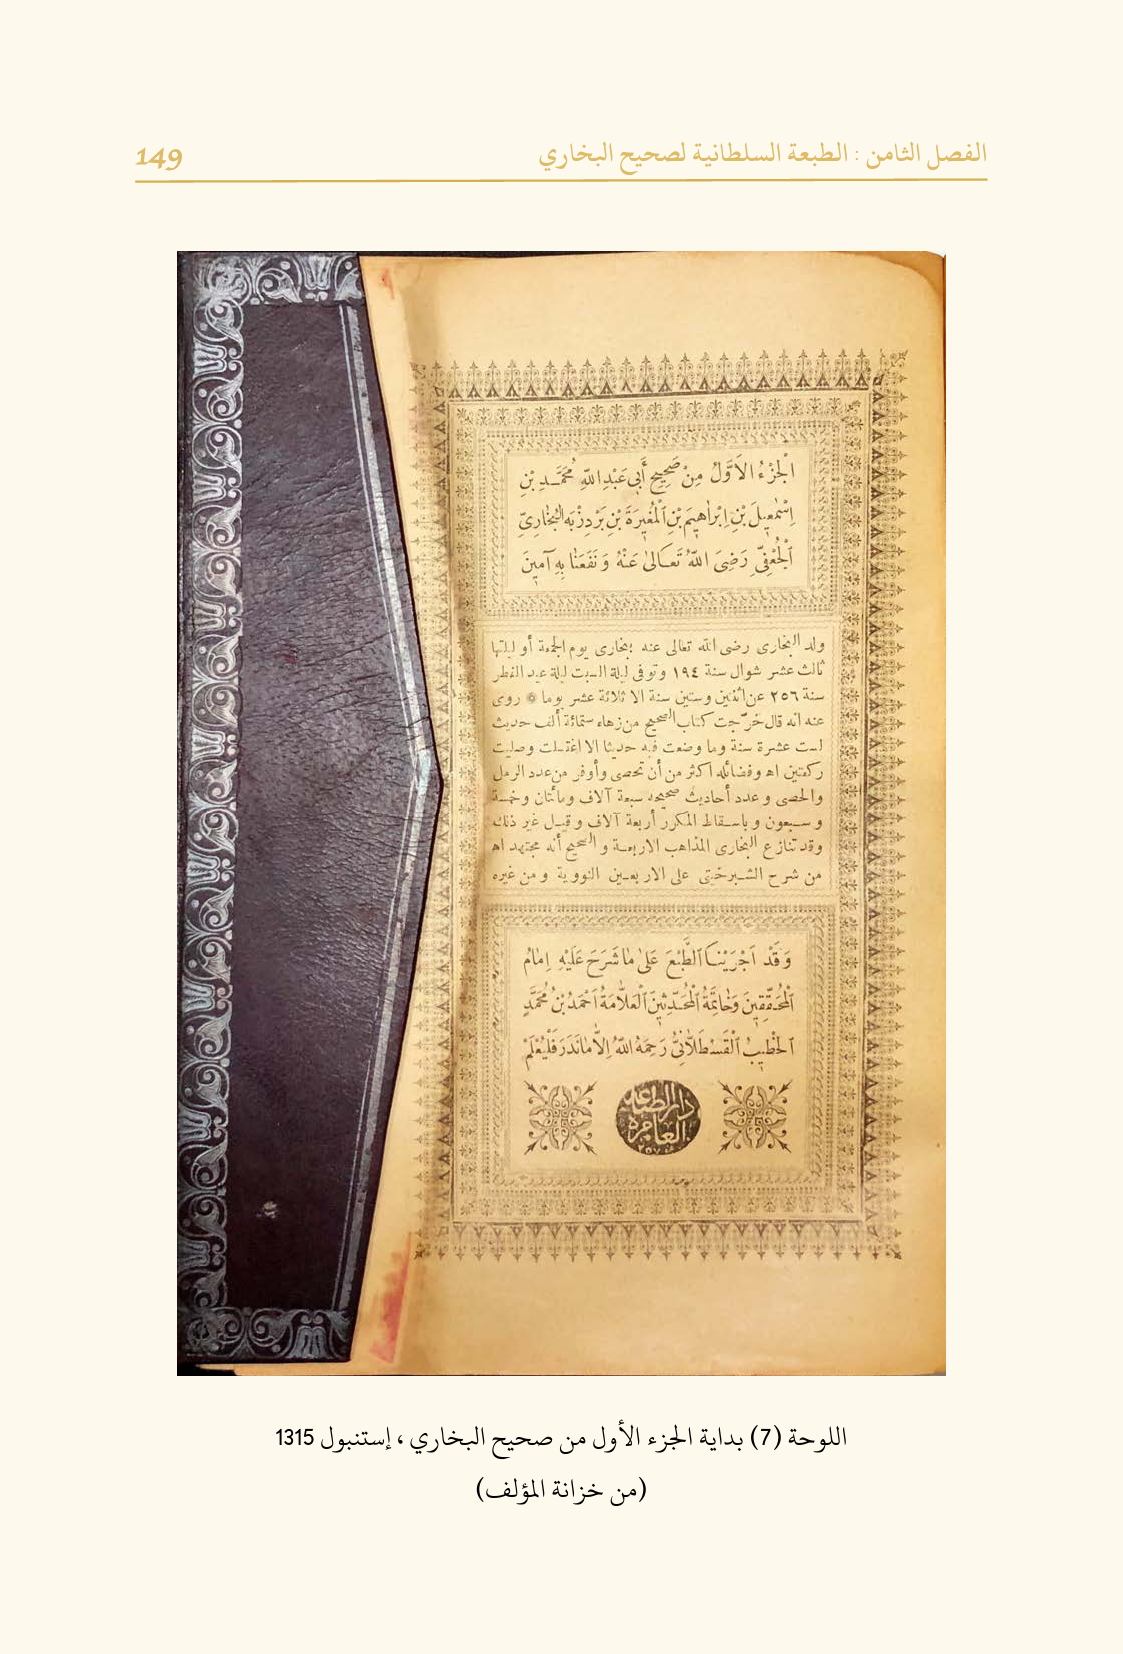 الفصل الثامن : الطبعة السلطانية لصحيح البخاري
149
اَلْجُزْءُ الْاَوَّلُ مِنْ صَحِيحِ أَبِي عَبْدِ اللّٰهِ مُحَمَّـدِ بْنِ
اِسْمٰعِيلَ بْنِ اِبْرَاهِيمَ بْنِ الْمُغِيرَةِ بْنِ بَرْدِزْبَهِ الْبُخَارِىِّ
اَلْجُعْفِىِّ رَضِىَ اللّٰهُ تَعَـالىٰ عَنْهُ وَنَفَعَنَا بِهِ آمِينَ
ولد البخارى رضى الله تعالى عنه ببخارى يوم الجمعة أو ليلتها
ثالث عشر شوال سنة ١٩٤ وتوفى ليلة السبت ليلة عيد الفطر
سنة ٢٥٦ عن اثنين وستين سنة الا ثلاثة عشر يوما ۞ روى
عنه انه قال خرّجت كتاب الصحيح من زهاء ستمائة ألف حديث
لست عشرة سنة وما وضعت فيه حديثا الا اغتسلت وصليت
ركعتين اه وفضائله اكثر من أن تحصى وأوفر من عدد الرمل
والحصى وعدد أحاديث صحيحه سبعة آلاف ومائتان وخمسة
وسبعون وباسقاط المكرر أربعة آلاف وقيل غير ذلك
وقد تنازع البخارى المذاهب الاربعة و الصحيح أنه مجتهد اه
من شرح الشبرخيتى على الاربعين النووية ومن غيره
وَقَدْ اَجْرَيْنَـا الطَّبْعَ عَلىٰ مَا شَرَحَ عَلَيْهِ اِمَامُ
الْمُحَقِّقِينَ وَخَاتِمَةُ الْمُحَدِّثِينَ اَلْعَلَّامَةُ اَحْمَدُ بْنُ مُحَمَّدٍ
اَلْخَطِيبُ الْقَسْطَلَّانِىُّ رَحِمَهُ اللّٰهُ اِلَّا مَا نَدَرَ فَلْيُعْلَمْ
دار الطباعه
العامره
اللوحة (7) بداية الجزء الأول من صحيح البخاري، إستنبول 1315
(من خزانة المؤلف)